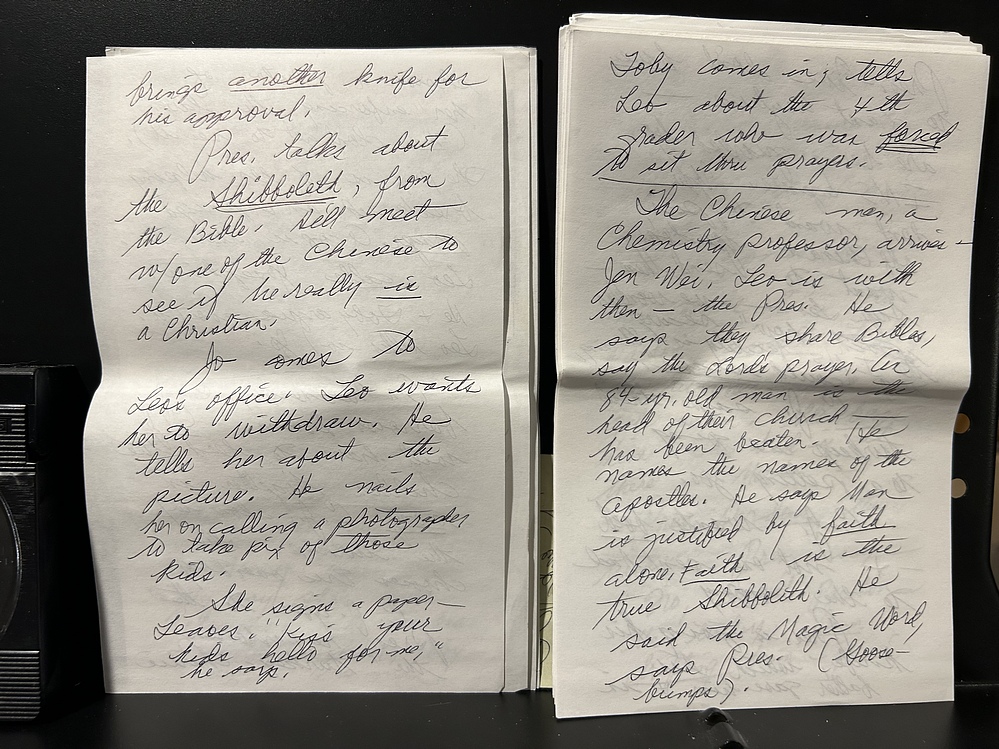 brings another knife for
his approval.
Pres. talks about
the Shibboleth, from
the Bible. Will meet
w/one of the Chinese to
see if he really is
a Christian.
Jo comes to
Leo's office. Leo wants
her to withdraw. He
tells her about the
picture. He nails
her on calling a photographer
to take pix of those
kids.
She signs a paper—
Leaves. "Kiss your
kids hello for me,"
he says.
Toby comes in; tells
Leo about the 4th
grader who was forced
to sit thru prayers.
The Chinese man, a
Chemistry professor, arrives—
Jen Wei. Leo is with
then — the Pres. He
says they share Bibles,
say the Lords prayer. An
84-yr. old man is the
head of their church— He
has been beaten.
names the names of the
apostles. He says Man
is justified by faith
alone. Faith is the
true Shibbolith. He
said the Magic Word,
says Pres. (Goose-
bumps).